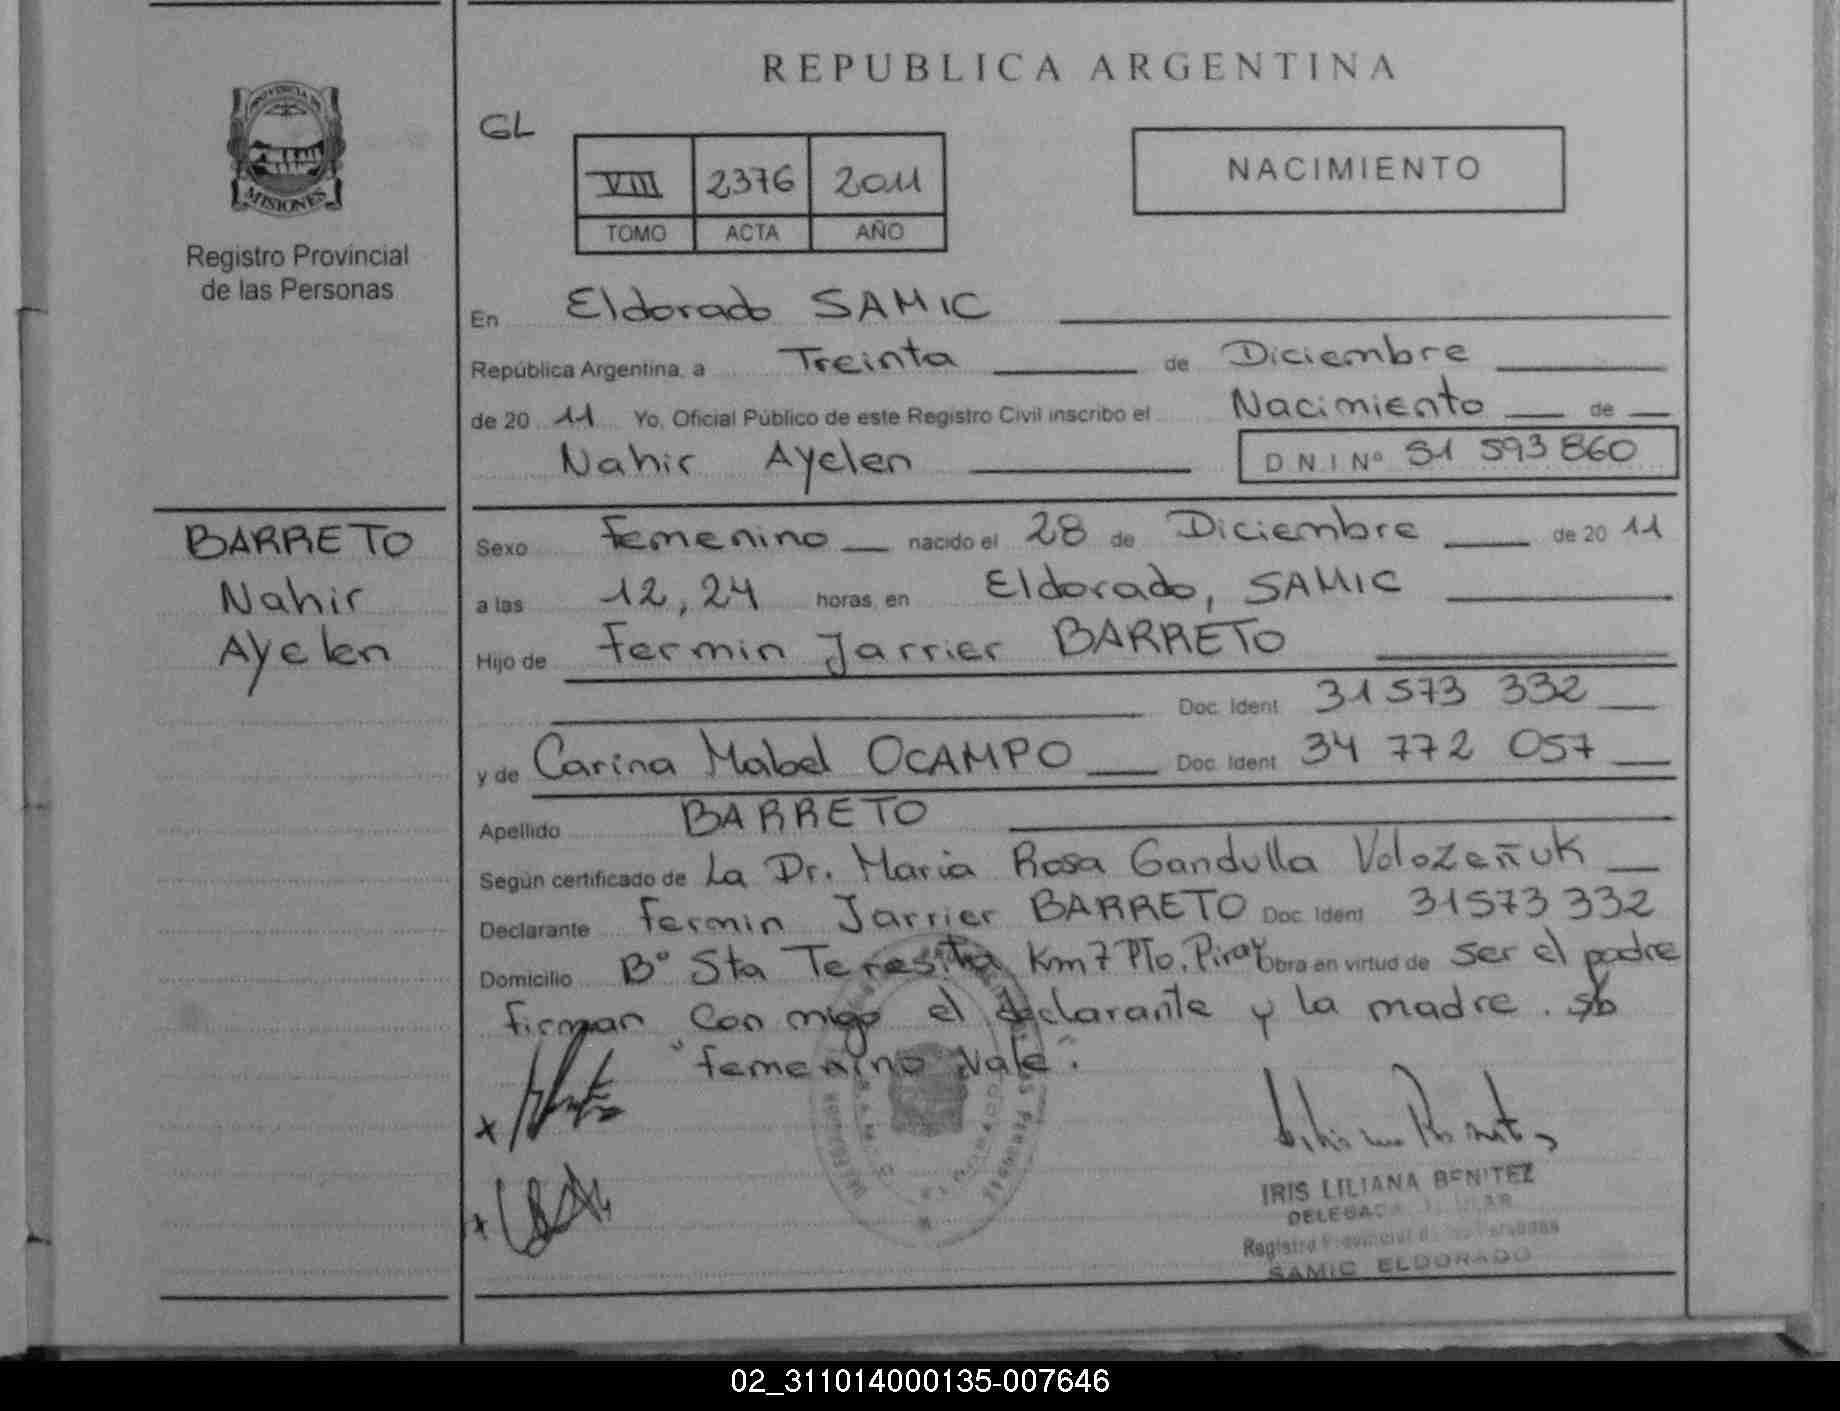 PROVINCIA DE
MISIONES
Registro Provincial
de las Personas
BARRETO
Nahir
Ayelen
REPUBLICA ARGENTINA
GL
VIII 2376 2011
TOMO ACTA AÑO
NACIMIENTO
En Eldorado SAMIC
República Argentina, a Treinta de Diciembre
de 20 11 Yo, Oficial Público de este Registro Civil inscribo el Nacimiento de
Nahir Ayelen DNI Nº 51 593 860
Sexo Femenino nacido el 28 de Diciembre de 20 11
a las 12,24 horas, en Eldorado, SAMIC
Hijo de Fermin Jarrier BARRETO
Doc. Ident 31 573 332
y de Carina Mabel OCAMPO Doc. Ident 34 772 057
Apellido BARRETO
Según certificado de La Dr. Maria Rosa Gandulla Volozeñuk
Declarante Fermin Jarrier BARRETO Doc. Ident 31573 332
Domicilio Bº Sta Teresita Km7 Pto. Piray Obra en virtud de ser el padre
firman conmigo el declarante y la madre. s/b
"femenino vale".
x
x
IRIS LILIANA BENITEZ
DELEGADA TITULAR
Registro Provincial de las Personas
SAMIC ELDORADO
02_311014000135-007646